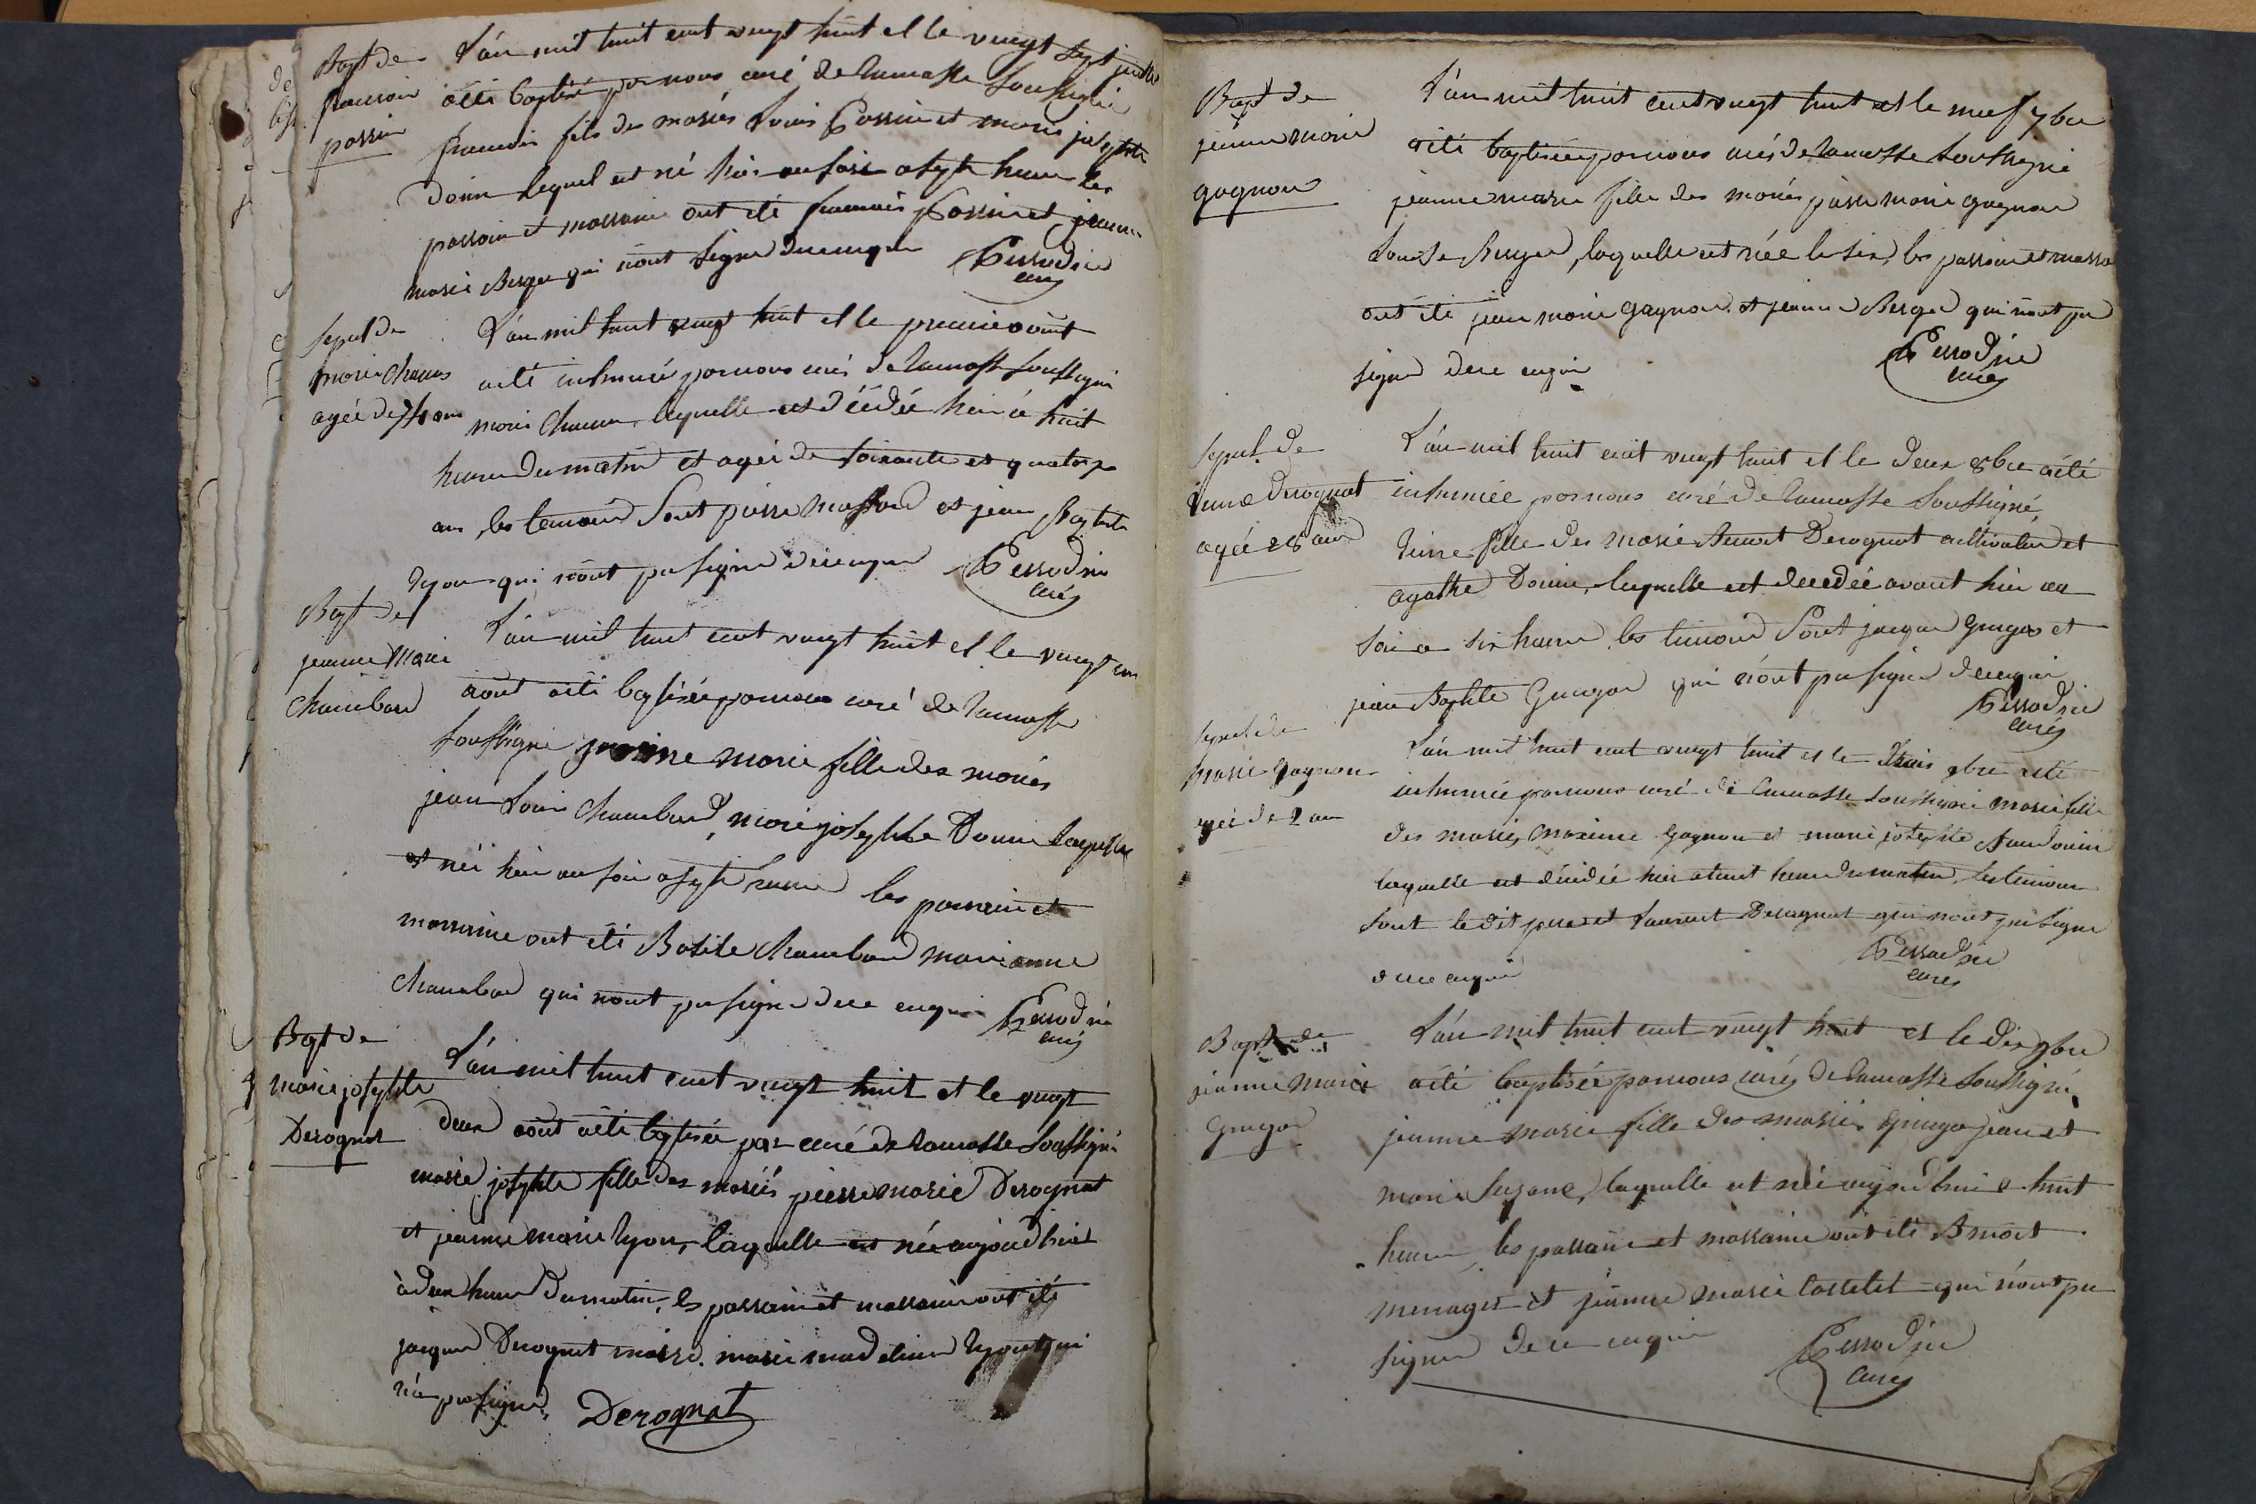 Bapt de
francois
possin
L'an mil huit cent vingt huit et le vingt sept juillet
a été baptisé par nous curé de Ramasse soussigné
francois fils des mariés Louis Possin et marie josephte
Donin lequel est né hier au soir a sept heure les
parrain et marraine ont été francois Possin et jeanne
marie Berger qui n'ont signe de ce enquis
curé
Sepul de
marie Chanu
agée de 74 ans
L'an mil huit vingt huit et le premier août
a été inhumée par nous curés de Ramasse soussigné
marie laquelle est décédée hier à huit
heure du matin et agée de soixante et quatorze
ans, les temoins sont pierre et jean Baptiste
Lyon qui n'ont pu signe de ce enquis
curé
Bapt de
jeanne Marie
Chambard
L'an mil huit cent vingt huit et le vingt un
août a été baptisée par nous curé de Ramasse
soussigné jeanne marie fille des mariés
jean Louis Chambard, marie josephte Donin laquelle
est née hier au soir a sept heure les parrain et
marraine ont été Basile Chambard marianne
Chambard qui n'ont pu signe de ce enquis
curé
Bapt de
marie josephte
Derognat
L'an mil huit cent vingt huit et le vingt
deux août a été baptisée par curé de Ramasse soussigné
marie josephte fille des mariés pierre marie Derognat
et jeanne marie Lyon, laquelle est née aujourd'hui
à deux heure du matin, les parrain et marraine ont été
jacque Derognat maire. marie madelaine Lyon qui
n'a pu signe, Derognat
Bapt de
jeanne marie
gagnon
L'an mil huit cent vingt huit et le neuf 7bre
a été baptisée par nous curés de Ramasse soussigné
jeanne marie fille des mariés pierre marie gagnon
Louise Berger, laquelle est née le six, les parrain et marraine
ont été jean marie gagnon et jeanne Berger qui n'ont pu
signe de ce enquis
curés
Sepul de
Derognat
agée 28 ans
L'an mil huit cent vingt huit et le deux 8bre a été
inhumée par nous curé de Ramasse soussigné,
fille des mariés Derognat cultivateur et
agathe Donin, laquelle est decedée avant hier au
soir a six heure les temoins sont jacque Guigon et
jean Baptiste Guigon qui n'ont pu signe de ce enquis
curés
Sepul de
marie gagnon
agée de 2 ans
L'an mil huit cent vingt huit et le trois 9bre a été
inhumée par nous curé de Ramasse soussigné marie fille
des mariés gagnon et marie josephte
laquelle est décédée hier a huit heure du matin, les temoins
sont le dit pere et Laurent Derognat qui n'ont pu signe
de ce enquis
curés
Bapt de
jeanne Marie
Guigon
L'an mil huit cent vingt huit et le dix 9bre
a été baptisée par nous curés de Ramasse soussigné,
jeanne marie fille des mariés Guigon jean et
marie Suzane, laquelle est née aujourd'hui a huit
heure, les parrain et marraine ont été
menager et jeanne marie qui n'ont pu
signer de ce enquis
curés